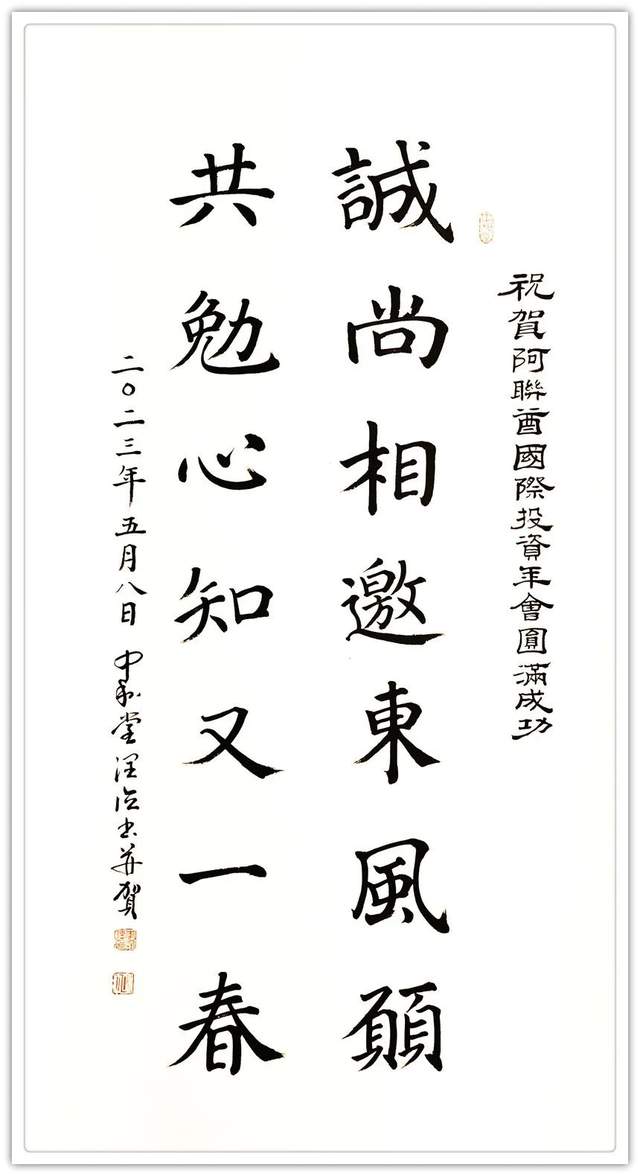 祝賀阿聯酋國際投資年會圓滿成功
誠尚相邀東風願
共勉心知又一春
二〇二三年五月八日 中和堂 書并賀